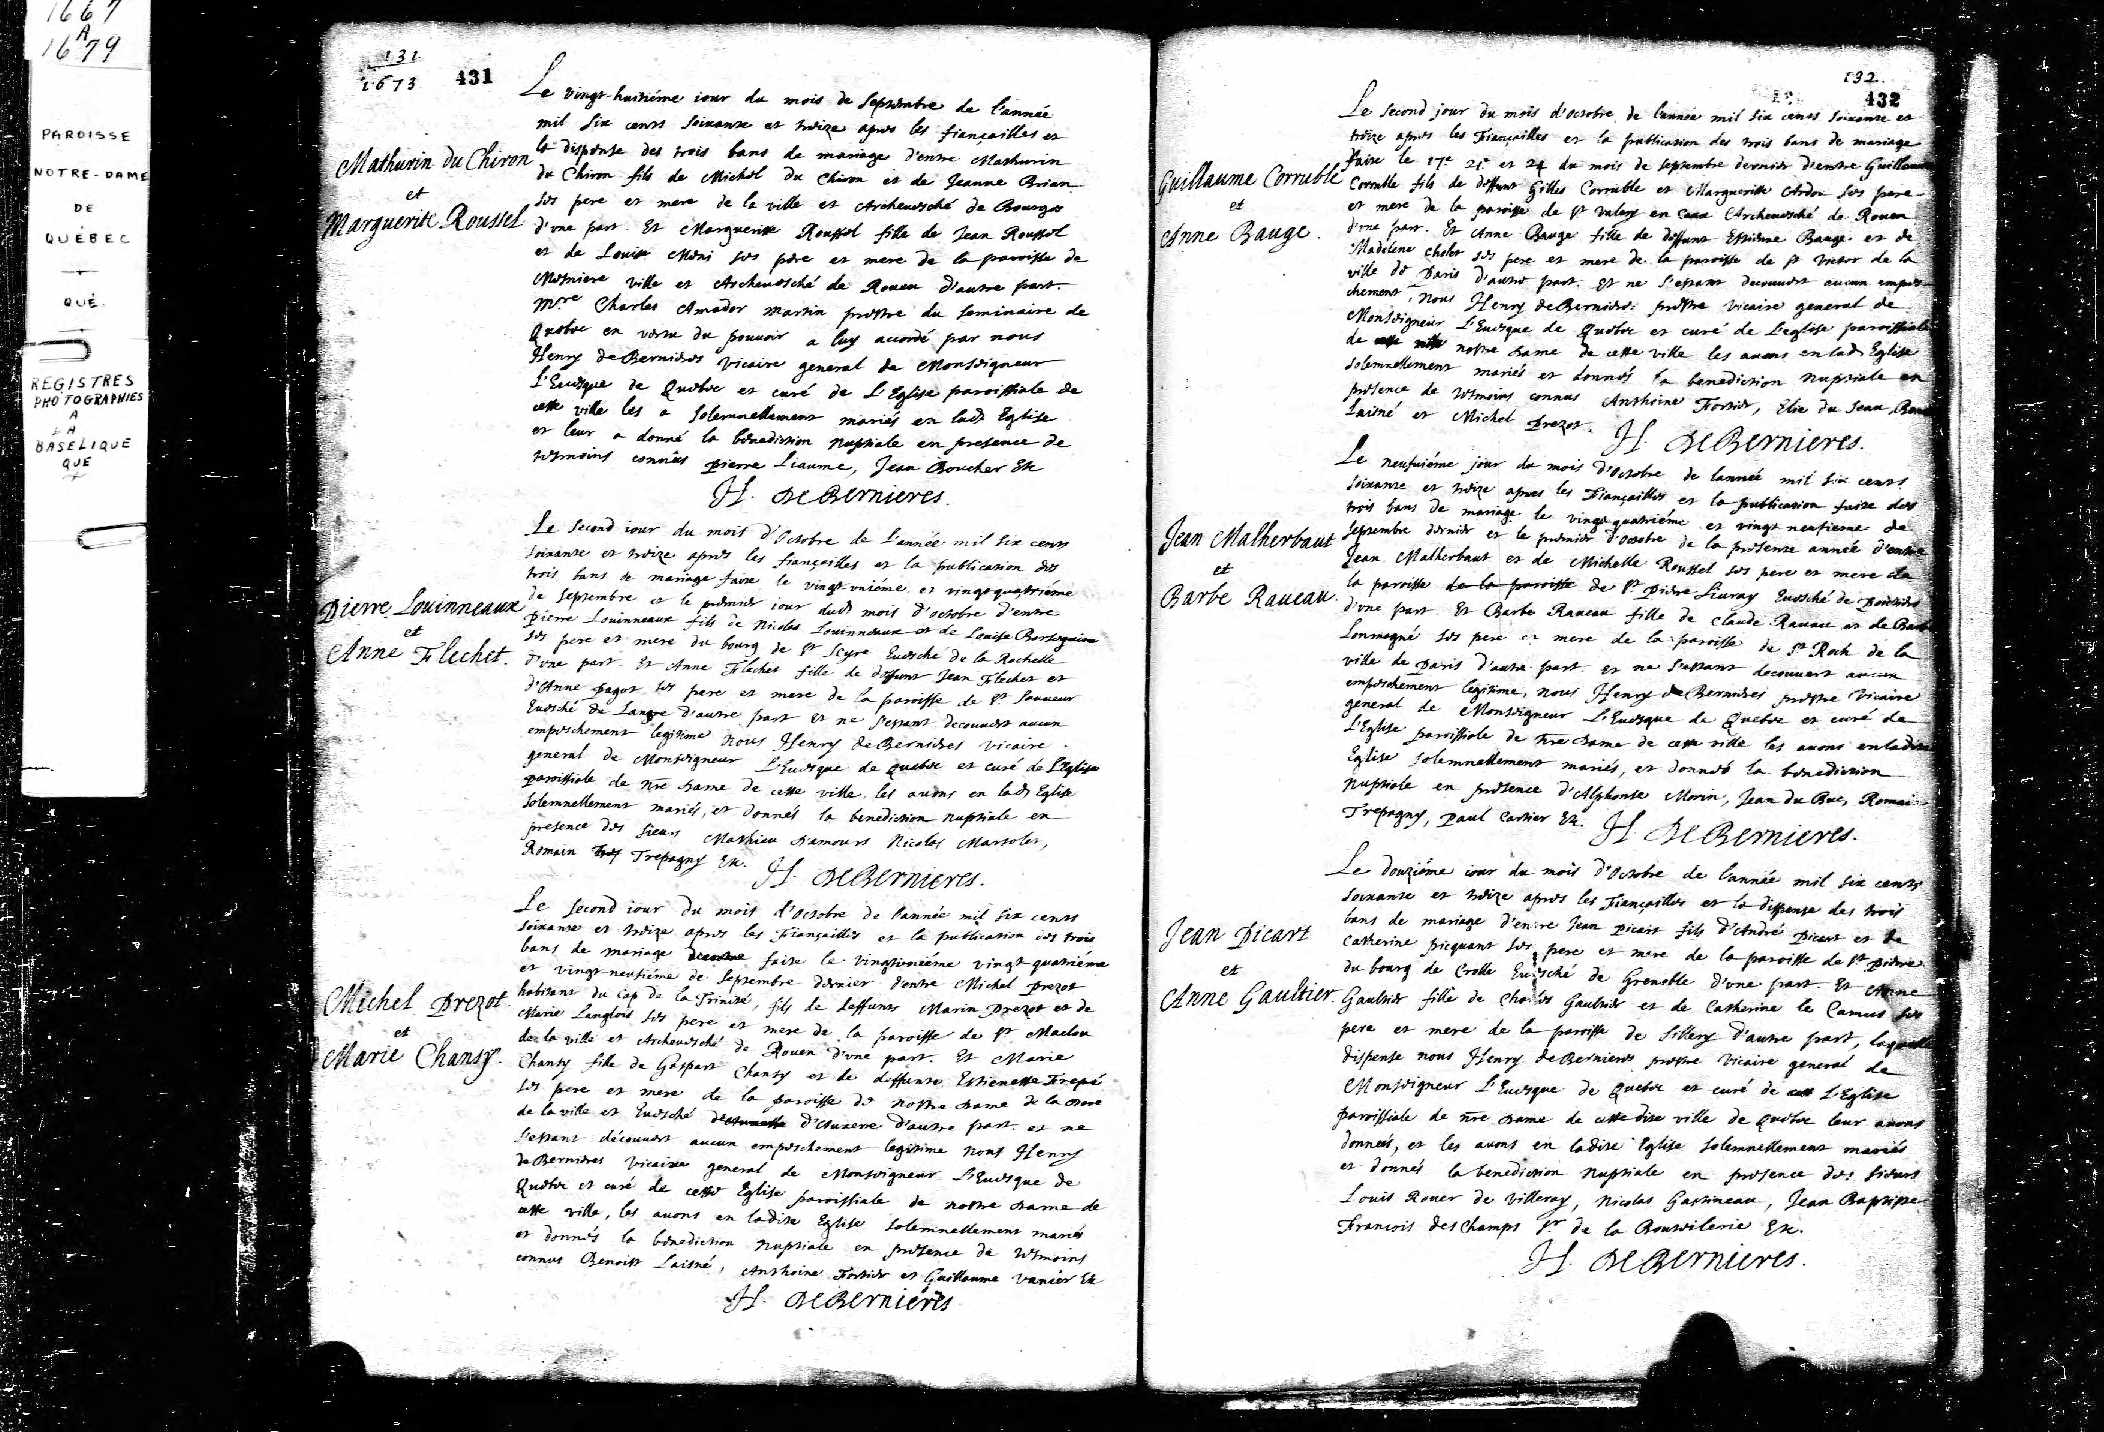 1667
A
1679
PAROISSE
NOTRE-DAME
DE
QUÉBEC
QUÉ.
REGISTRES
PHOTOGRAPHIES
A
LA
BASELIQUE
QUE
131
1673
431
Mathurin du Chiron
et
Marguerite Roussel
Le vingt-huitiéme iour du mois de Septembre de l'année
mil six cents soixante et treize apres les fiançailles et
la dispense des trois bans de mariage d'entre Mathurin
du Chiron fils de Michel du Chiron et de Jeanne Brian
ses pere et mere de la ville et Archeuesché de Bourges
d'vne part. Et Marguerite Roussel fille de Jean Roussel
et de Louise Meni ses pere et mere de la paroisse de
Mesniere ville et Archeuesché de Rouen d'autre part.
Mre Charles Amador martin prestre du seminaire de
Quebec en vertu du pouvoir a luy accordé par nous
Henry de Bernieres vicaire general de Monseigneur
L'Euesque de Quebec et curé de L'Eglise paroissiale de
cette ville les a solemnellement mariés en lad. Eglise
et leur a donné la benediction nuptiale en presence de
tesmoins connûs pierre Liaume, Jean Boucher Etc
H. DeBernieres.
Pierre Louinneaux
et
Anne Flechet.
Le second iour du mois d'Octobre de L'année mil six cents
soixante et treize apres les fiançailles et la publication des
trois bans de mariage faite le vingt vniéme et vingt quatriéme
de septembre et le premier iour dud. mois d'octobre d'entre
pierre Louinneaux fils de Nicolas Louinneaux et de Louise
ses pere et mere du bourg de St Scyre Euesché de la Rochelle
d'vne part. Et Anne Flechet fille de deffunt Jean Flechet et
d'Anne pagot ses pere et mere de la paroisse de St Sauueur
Euesché de Langre d'autre part et ne s'estant decouuert aucun
empeschement legitime nous Henry de Bernieres vicaire
general de Monseigneur L'Euesque de quebec et curé de L'Eglise
paroissiale de nre Dame de cette ville les auons en lad. Eglise
solemnellement mariés, et donnés la benediction nuptiale en
presence des sieurs Mathieu Damours Nicolas Marsolet,
Romain Trepagny Etc.
H. DeBernieres.
Michel Prezot
et
Marie Chansy.
Le second iour du mois d'Octobre de l'année mil six cents
soixante et treize apres les Fiançailles et la publication des trois
bans de mariage faite le vingtvniéme vingt quatriéme
et vingt neufiéme de septembre dernier d'entre Michel Prezot
habitant du Cap de la Trinité, fils de deffunts Marin Prezot et de
Marie Langlois ses pere et mere de la paroisse de St Maclou
de la ville et Archeuesché de Rouen d'vne part. Et Marie
Chansy fille de Gaspart Chansy et de deffunte Estienette
ses pere et mere de la paroisse de nostre Dame de la
de la ville et Euesché d'Auxere d'autre part. et ne
s'estant découuert aucun empeschement legitime nous Henry
de Bernieres vicaire general de Monseigneur L'Euesque de
Quebec et curé de cette Eglise paroissiale de nostre Dame de
cette ville, les auons en ladite Eglise solemnellement mariés
et donnés la benediction nuptiale en presence de tesmoins
connus Benoist Laisné, Anthoine Fortier et Guillaume vanier Etc
H. DeBernieres
132
432
Guillaume Corruble
et
Anne Bauge.
Le second jour du mois d'octobre de l'année mil six cents soixante et
treize apres les Fiançailles et la publication des trois bans de mariage
faite le 17e 21e et 24 du mois de septembre dernier d'entre Guillaume
Corruble fils de deffunt Gilles Corruble et Marguerite Ardon ses pere
et mere de la paroisse de St Valery en Caux Archeuesché de Rouen
d'vne part. Et Anne Bauge fille de deffunt Estienne Bauge et de
Madelene Cholet ses pere et mere de la paroisse de St Victor de la
ville de Paris d'autre part. Et ne s'estant decouuert aucun empes-
chement, Nous Henry de Bernieres prestre vicaire general de
Monseigneur L'Euesque de Quebec et curé de L'eglise paroissiale
de nostre Dame de cette ville les auons en lad. Eglise
solemnellement mariés et donnés la benediction nuptiale en
presence de tesmoins connus Anthoine Fortier, Elie du Jean,
Laisné et Michel Prezot.
H. DeBernieres.
Jean Malherbaut
et
Barbe Raueau.
Le neufuiéme jour du mois d'Octobre de lannée mil six cents
soixante et treize apres les Fiançailles et la publication faite des
trois bans de mariage le vingt quatriéme et vingt neufieme de
septembre dernier et le premier d'octobre de la presente année d'entre
Jean Malherbaut et de Michelle Roussel ses pere et mere de
la paroisse de la paroisse de St Pierre Liuray Euesché de poictiers
d'vne part Et Barbe Raueau fille de Claude Raueau et de Barbe
Lonmogné ses pere et mere de la paroisse de St Roch de la
ville de Paris d'autre part et ne s'estant decouuert aucun
empeschement legitime, nous Henry de Bernieres prestre vicaire
general de Monseigneur L'Euesque de Quebec et curé de
L'Eglise paroissiale de nre Dame de cette ville les auons en ladite
Eglise solemnellement mariés, et donnés la benediction
nuptiale en presence d'Alphonse Morin, Jean du Buc, Romain
Trepagny, paul Cartier Etc.
H. DeBernieres.
Jean Picart
et
Anne Gaultier.
Le douziéme iour du mois d'Octobre de l'année mil six cents
soixante et treize apres les Fiançailles et la dispense des trois
bans de mariage d'entre Jean Picart fils d'André Picart et de
Catherine picquant ses pere et mere de la paroisse de St pierre
du bourg de Crolle Euesché de Grenoble d'vne part. Et Anne
Gaultier fille de Charles Gaultier et de Catherine le Camus ses
pere et mere de la paroisse de Sillery d'autre part, laquelle
dispense nous Henry de Bernieres prestre vicaire general de
Monseigneur L'Euesque de Quebec et curé de L'Eglise
paroissiale de nre Dame de cette dite ville de Quebec leur auons
donnees, et les auons en ladite Eglise solemnellement mariés
et donnés la benediction nuptiale en presence des sieurs
Louis Rouer de Villeray, Nicolas Gastineau, Jean Baptiste
Francois des Champs Sr de la Bouteilerie Etc.
H. DeBernieres.